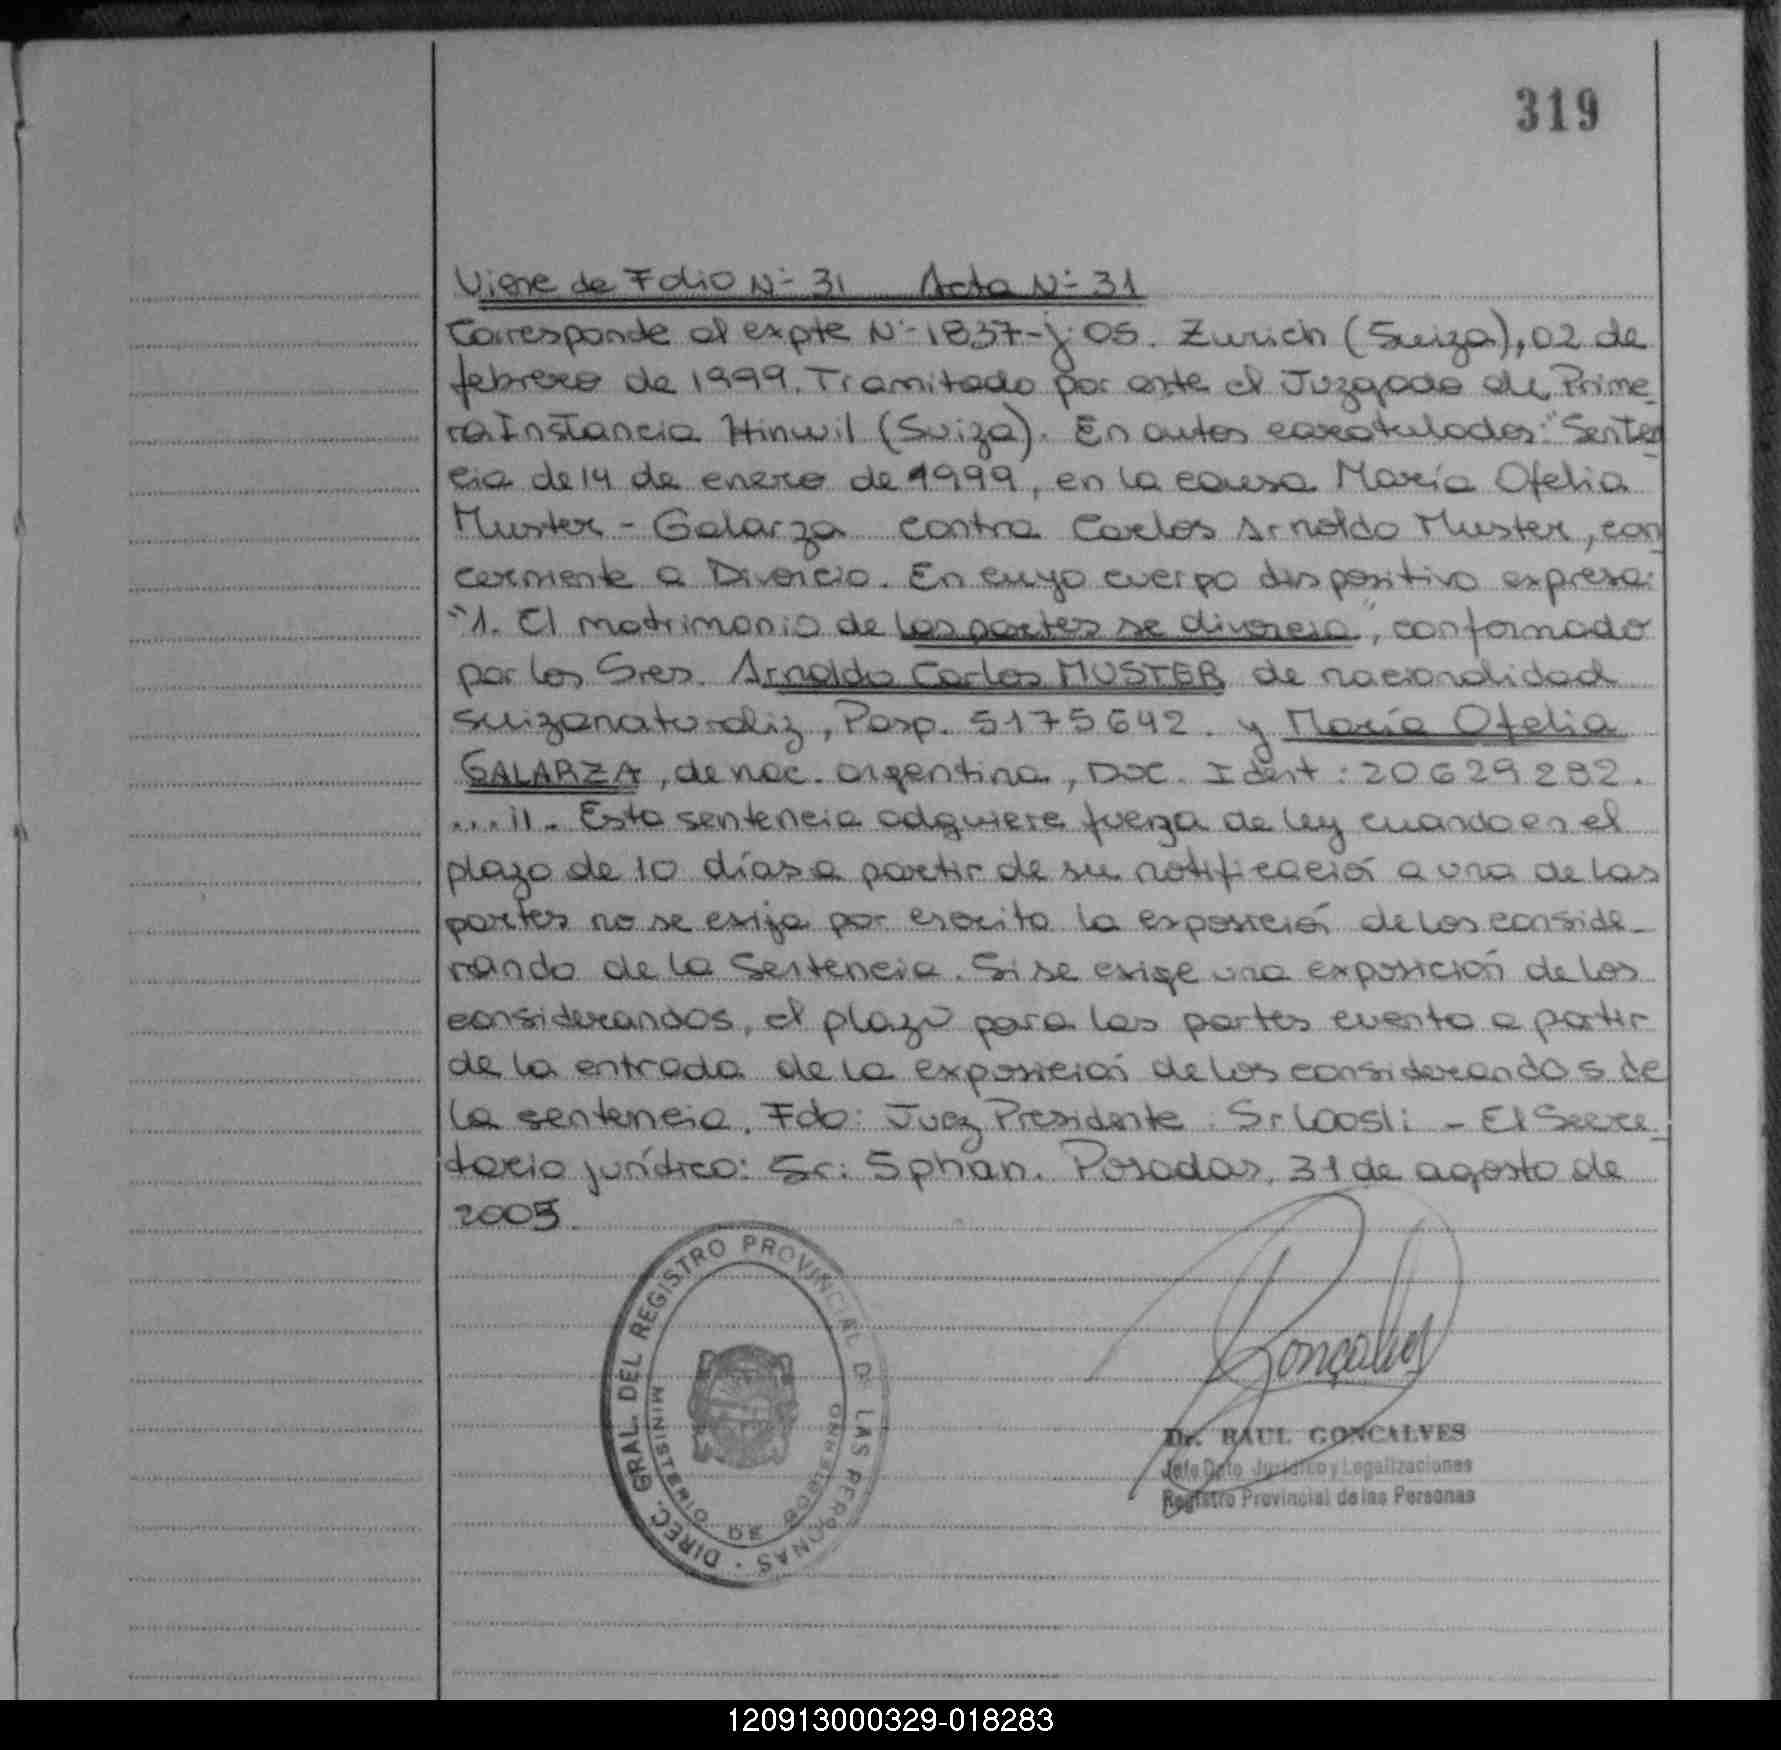 319
Viene de Folio Nº 31 Acta Nº 31
Corresponde al expte Nº 1837-j-05. Zurich (Suiza), 02 de
febrero de 1999. Tramitado por ante el Juzgado de Prime-
ra Instancia Hinwil (Suiza). En autos caratulados: "Senten-
cia de 14 de enero de 1999, en la causa María Ofelia
Muster - Galarza contra Carlos Arnoldo Muster, con-
cerniente a Divorcio. En cuyo cuerpo dispositivo expresa:
"1. El matrimonio de las partes se divorcia", conformado
por los Sres. Arnoldo Carlos MUSTER de nacionalidad
suiza naturaliz, Pasp. 5175642. y María Ofelia
GALARZA, de nac. argentina, Doc. Ident: 20629282.
... 11. Esta sentencia adquiere fuerza de ley cuando en el
plazo de 10 días a partir de su notificación a una de las
partes no se exija por escrito la exposición de los conside-
rando de la Sentencia. Si se exige una exposición de los
considerandos, el plazo para las partes cuenta a partir
de la entrada de la exposición de los considerandos de
la sentencia. Fdo: Juez Presidente: Sr Loosli - El Secre-
tario jurídico: Sr: Sphan. Posadas, 31 de agosto de
2005.
DIREC. GRAL. DEL REGISTRO PROVINCIAL DE LAS PERSONAS
MINISTERIO DE GOBIERNO
Goncalves
Dr. RAUL GONCALVES
Jefe Dpto Jurídico y Legalizaciones
Registro Provincial de las Personas
120913000329-018283